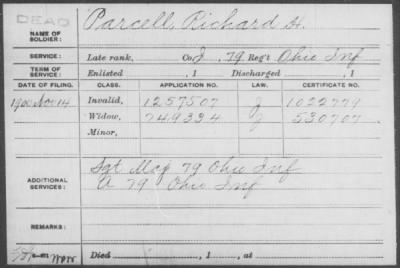 DEAD
NAME OF SOLDIER: Parcell, Richard H.
SERVICE: Late rank, Co. I, 79 Reg't Ohio Inf
TERM OF SERVICE: Enlisted , 1 Discharged , 1
DATE OF FILING. CLASS. APPLICATION NO. LAW. CERTIFICATE NO.
1900 Nov 14 Invalid, 1257507 1022779
Widow, 749334 530707
Minor,
ADDITIONAL SERVICES: Sgt Maj 79 Ohio Inf
A 79 Ohio Inf
REMARKS:
Died , 1 , at